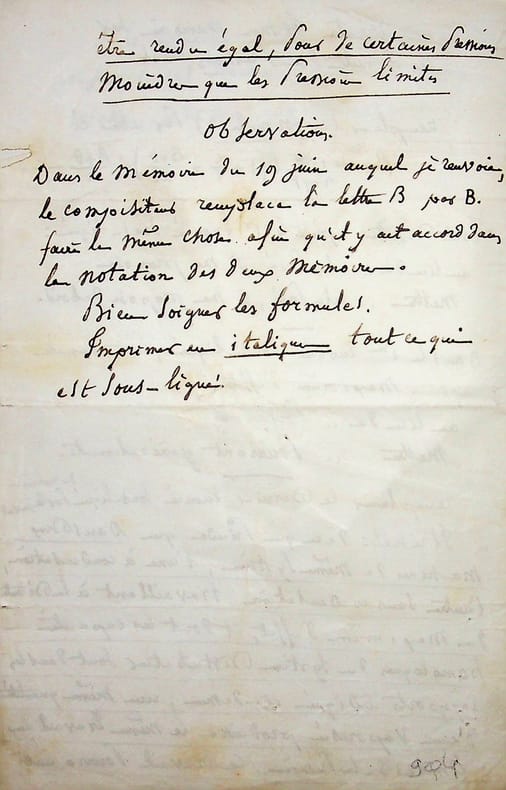 être rendu égal, pour de certaines pressions
moindres que les pressions limites
Observations.
Dans le mémoire du 19 juin auquel je renvoie,
le compositeur remplace la lettre B par B.
faire la même chose afin qu'il y ait accord dans
la notation des deux mémoires.
Bien soigner les formules.
Imprimer en italique tout ce qui
est sous-ligné.